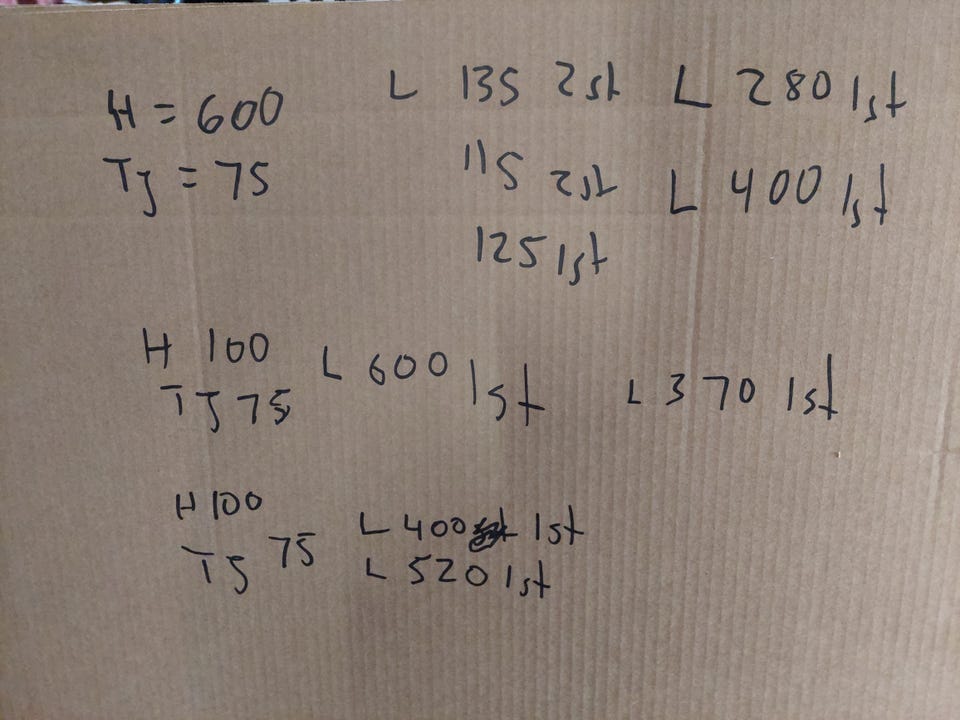 H = 600 L 135 2st L 280 1st
Tj = 75 115 2st L 400 1st
125 1st
H 100 L 600 1st L 370 1st
TJ 75
H 100 L 400 1st
Tj 75 L 520 1st